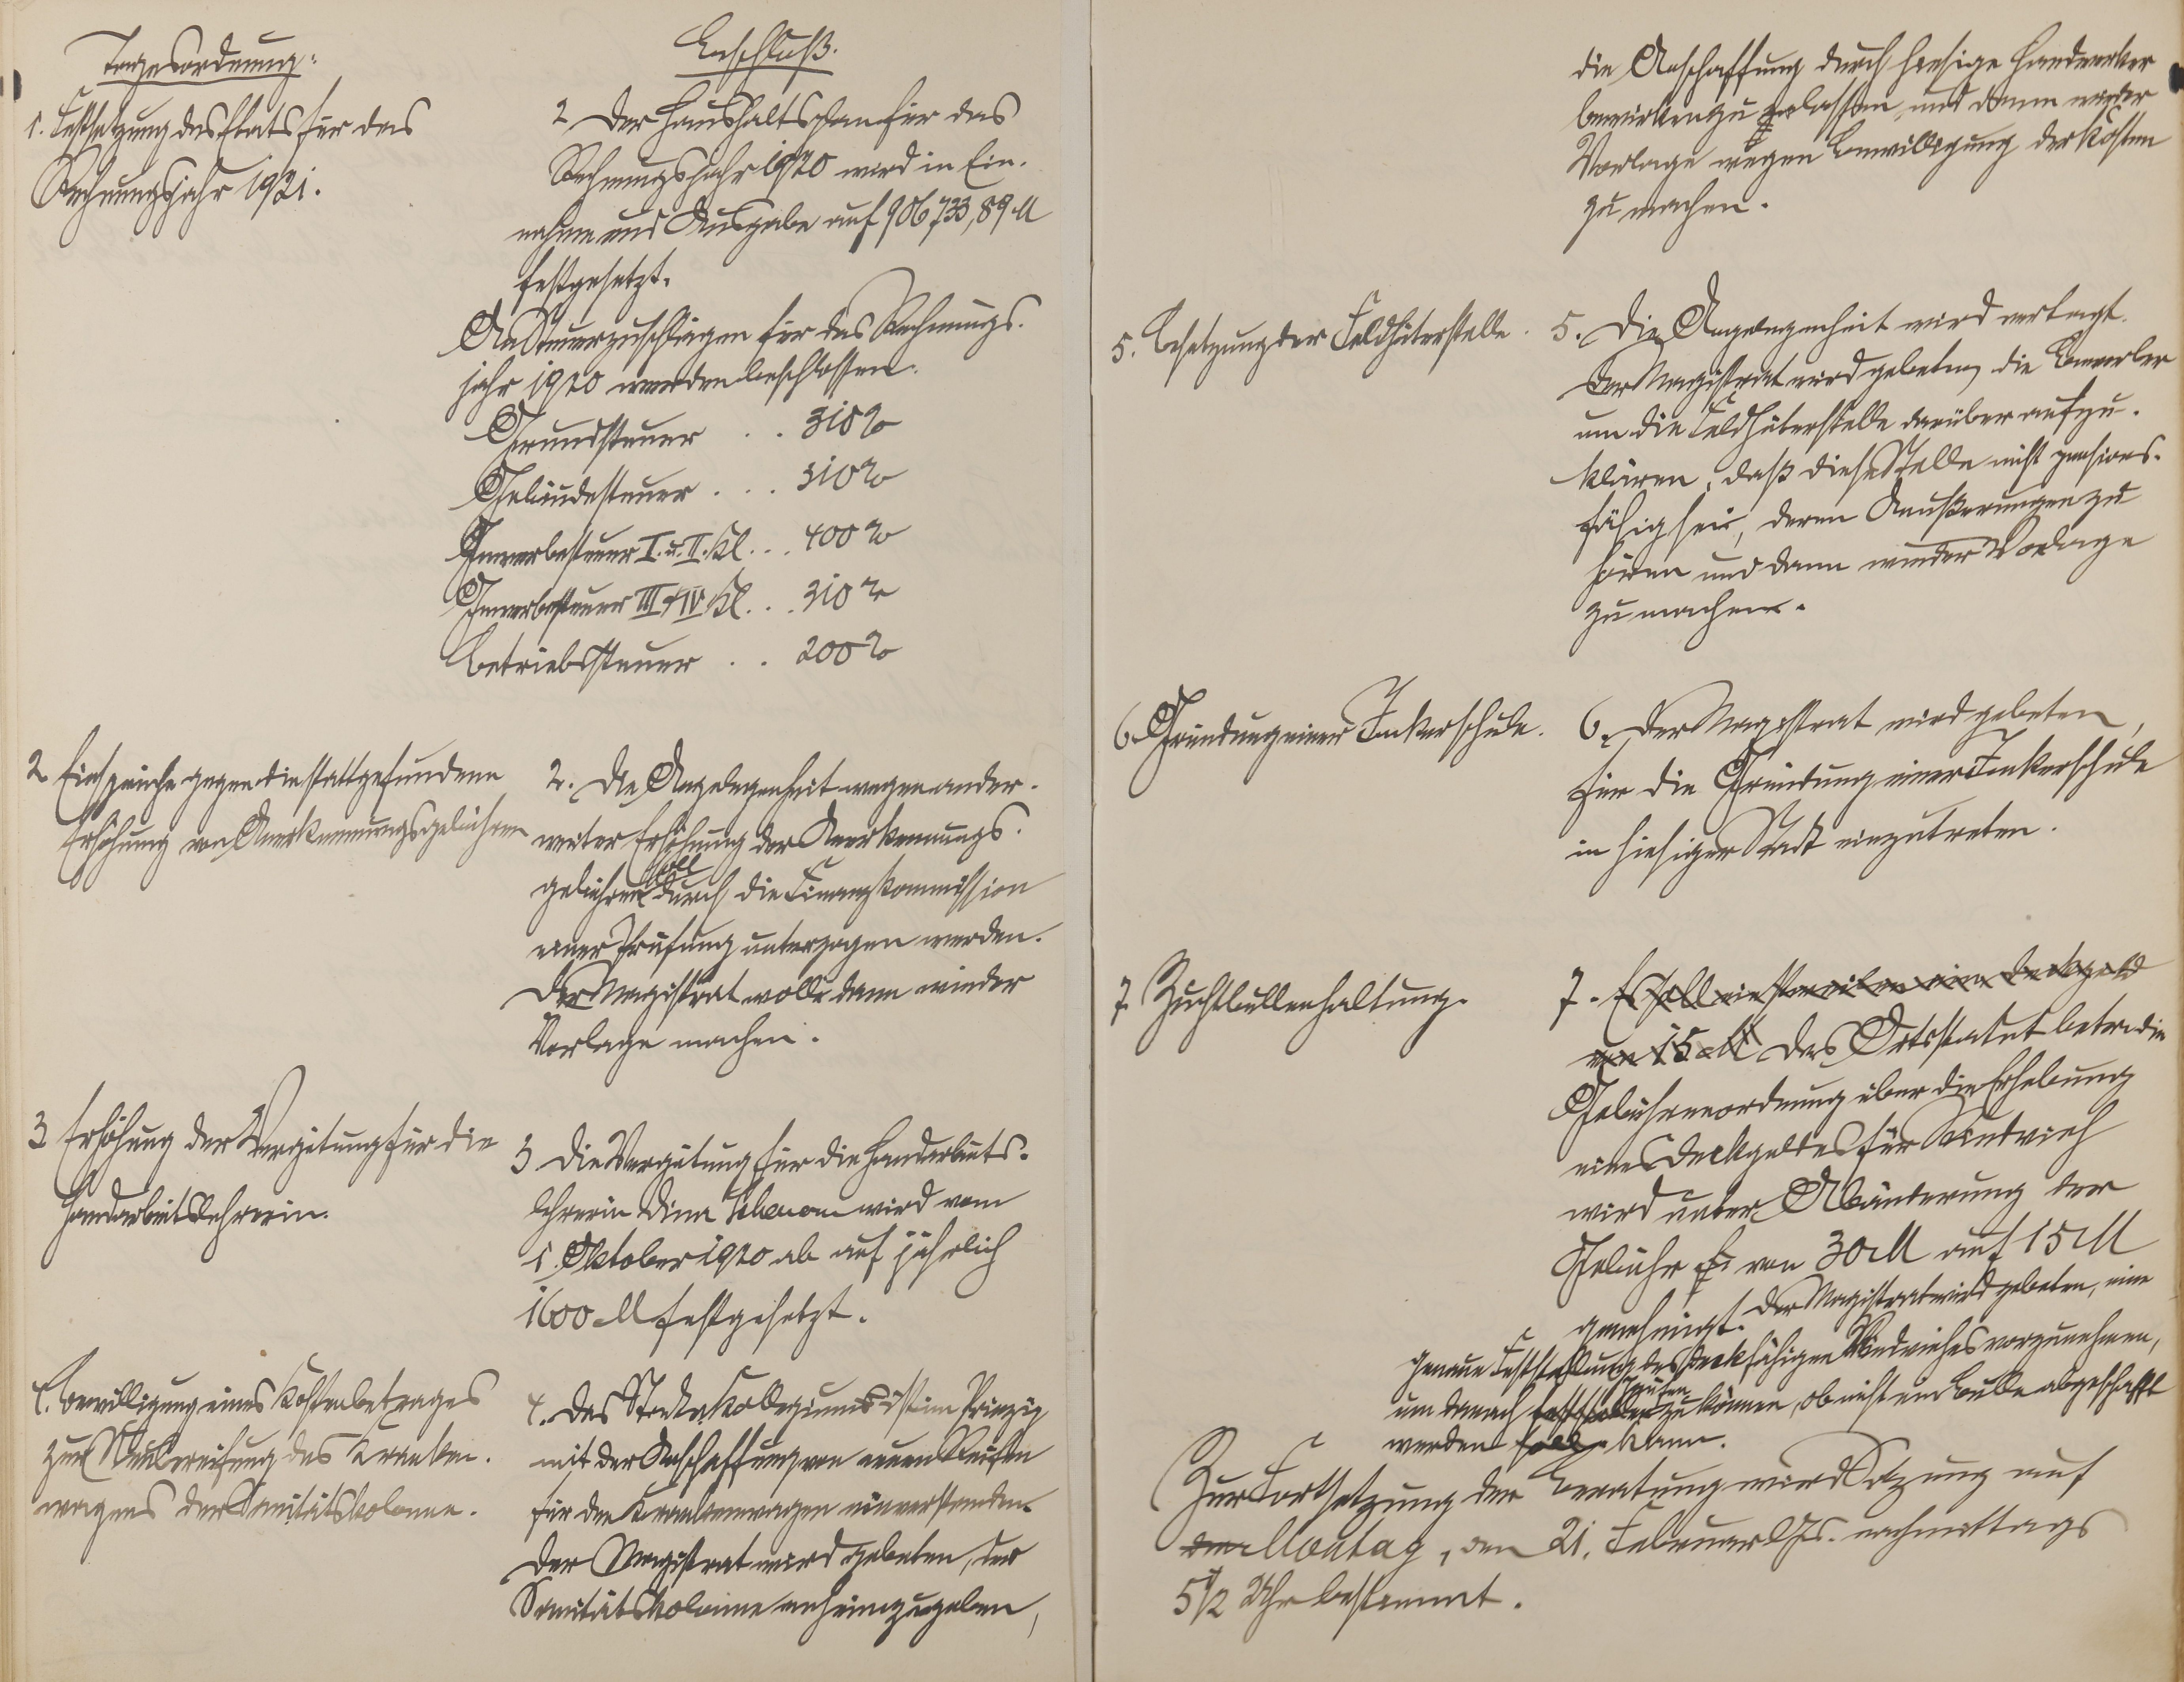 Tagesordnung:
1. Festsetzung des Etats für das
Rechnungsjahr 1921.
Beschluß.
2 Der Haushaltsplan für das
Rechnungsjahr 1920 wird in Ein-
nahme und Ausgabe auf 906733,89 M
festgesetzt.
An Steuerzuschlägen für das Rechnungs-
jahr 1920 werden beschlossen:
Grundsteuer . . 310%
Gebäudesteuer . . . 310%
Gewerbesteuer I. u. II. Kl. . . 400%
Gewerbesteuer III + IV Kl. . . 310%
Betriebssteuer . . 200%
2 Einsprüche gegen die stattgefundene
Erhöhung von Anerkennungsgebühren
2. Die Angelegenheit wegen ander-
weiter Erhöhung der Anerkennungs-
gebühren soll durch die Finanzkommission
einer Prüfung unterzogen werden.
Der Magistrat wolle dann wieder
Vorlage machen.
3 Erhöhung der Vergütung für die
Handarbeitslehrerin.
3 Die Vergütung für die Handarbeits-
lehrerin Dina wird vom
1. Oktober 1920 ab auf jährlich
1600 M festgesetzt.
4. Bewilligung eines Kostenbetrages
zur Neubereifung des Kranken-
wagens der Sanitätskolonne.
4. Das Stadtkollegium ist im Prinzip
mit der Anschaffung von neuen Reifen
für den Krankenwagen einverstanden.
Der Magistrat wird gebeten, der
Sanitätskolonne anheimzugeben,
die Anschaffung durch hiesige Handwerker
bewirken zu lassen und dann wieder
Vorlage wegen Bewilligung der Kosten
zu machen.
5. Besetzung der Feldhüterstelle.
5. Die Angelegenheit wird vertagt.
Der Magistrat wird gebeten, die Bewerber
um die Feldhüterstelle darüber aufzu-
klären, daß diese Stelle nicht pensions-
fähig sei, deren Aeußerungen zu
hören und dann wieder Vorlage
zu machen.
6. Gründung einer Imkerschule.
6. Der Magistrat wird gebeten,
für die Gründung einer Imkerschule
in hiesiger Stadt einzutreten.
7. Zuchtbullenhaltung.
7. Es soll einstweilen ein Deckgeld
von 15 M Das Ortsstatut betr. die
Gebührenordnung über die Erhebung
eines Deckgeldes für Rindvieh
wird unter Abänderung der
Gebühr von 30 M auf 15 M
genehmigt. Der Magistrat wird gebeten, eine
genaue Feststellung des deckfähigen Rindviehes vorzunehmen,
um danach feststellen prüfen zu können, ob nicht ein Bulle abgeschafft
werden soll kann.
Zur Fortsetzung der Beratung wird Sitzung auf
den Montag, den 21. Februar ds. Js. nachmittags
5 1/2 Uhr bestimmt.